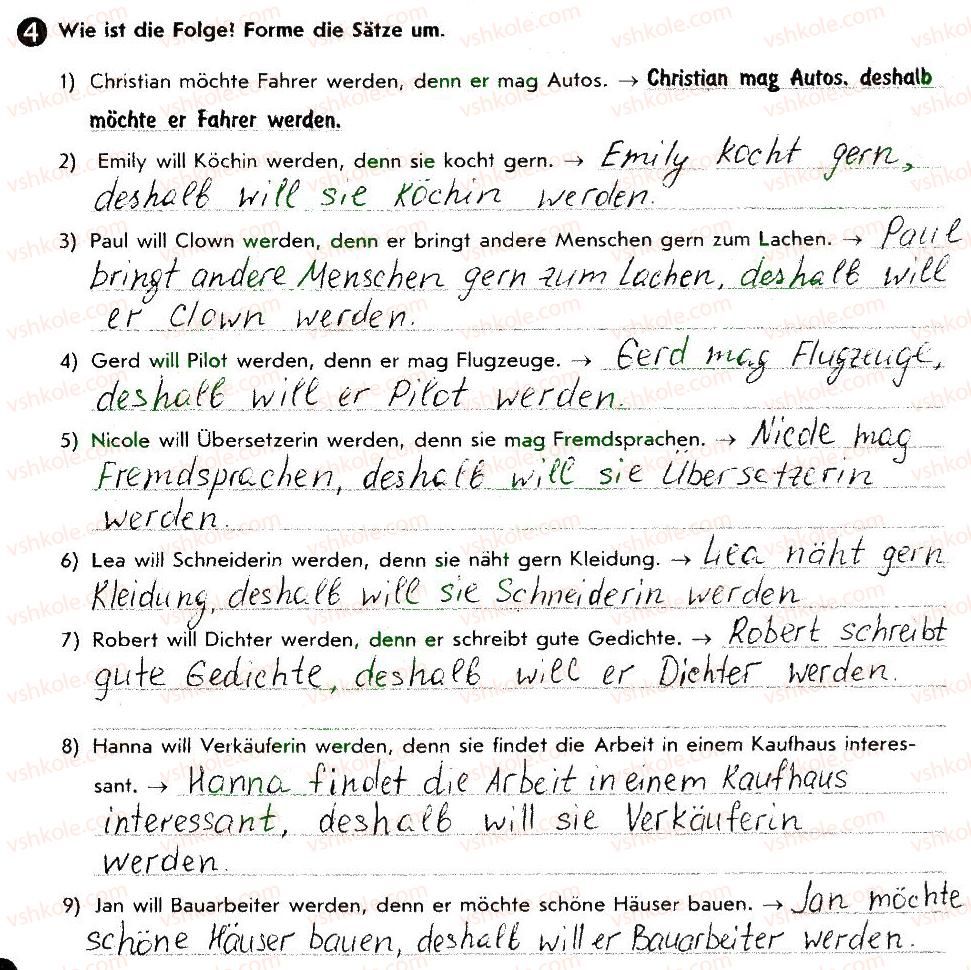 4 Wie ist die Folge? Forme die Sätze um.
1) Christian möchte Fahrer werden, denn er mag Autos. → Christian mag Autos. deshalb
möchte er Fahrer werden.
2) Emily will Köchin werden, denn sie kocht gern. → Emily kocht gern,
deshalb will sie Köchin werden.
3) Paul will Clown werden, denn er bringt andere Menschen gern zum Lachen. → Paul
bringt andere Menschen gern zum Lachen, deshalb will
er Clown werden.
4) Gerd will Pilot werden, denn er mag Flugzeuge. → Gerd mag Flugzeuge,
deshalb will er Pilot werden.
5) Nicole will Übersetzerin werden, denn sie mag Fremdsprachen. → Nicole mag
Fremdsprachen, deshalb will sie Übersetzerin
werden.
6) Lea will Schneiderin werden, denn sie näht gern Kleidung. → Lea näht gern
Kleidung, deshalb will sie Schneiderin werden
7) Robert will Dichter werden, denn er schreibt gute Gedichte. → Robert schreibt
gute Gedichte, deshalb will er Dichter werden.
8) Hanna will Verkäuferin werden, denn sie findet die Arbeit in einem Kaufhaus interes-
sant. → Hanna findet die Arbeit in einem Kaufhaus
interessant, deshalb will sie Verkäuferin
werden.
9) Jan will Bauarbeiter werden, denn er möchte schöne Häuser bauen. → Jan möchte
schöne Häuser bauen, deshalb will er Bauarbeiter werden.